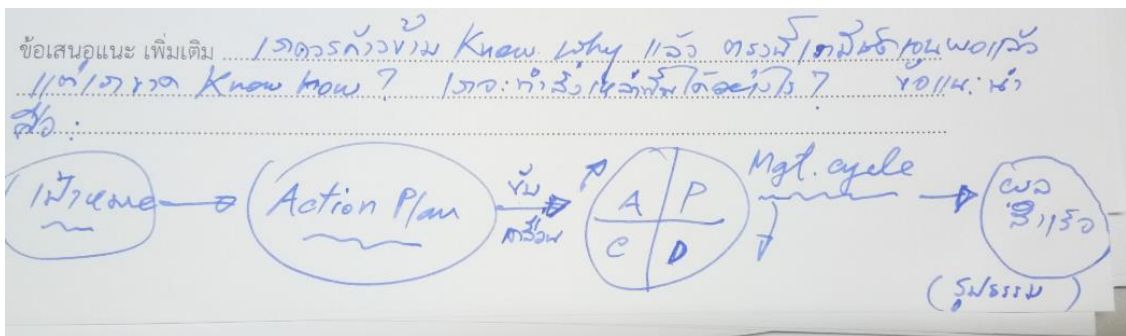 ข้อเสนอแนะ เพิ่มเติม เราควรก้าวข้าม Know Why แล้ว ตรงนี้เรามีชัดเจนพอแล้ว
แต่เราขาด Know how? เราจะทำสิ่งเหล่านี้ได้อย่างไร? ข้อแนะนำ
คือ :
เป้าหมาย Action Plan ขับเคลื่อน A P C D Mgt. cycle ผลสำเร็จ
(รูปธรรม)